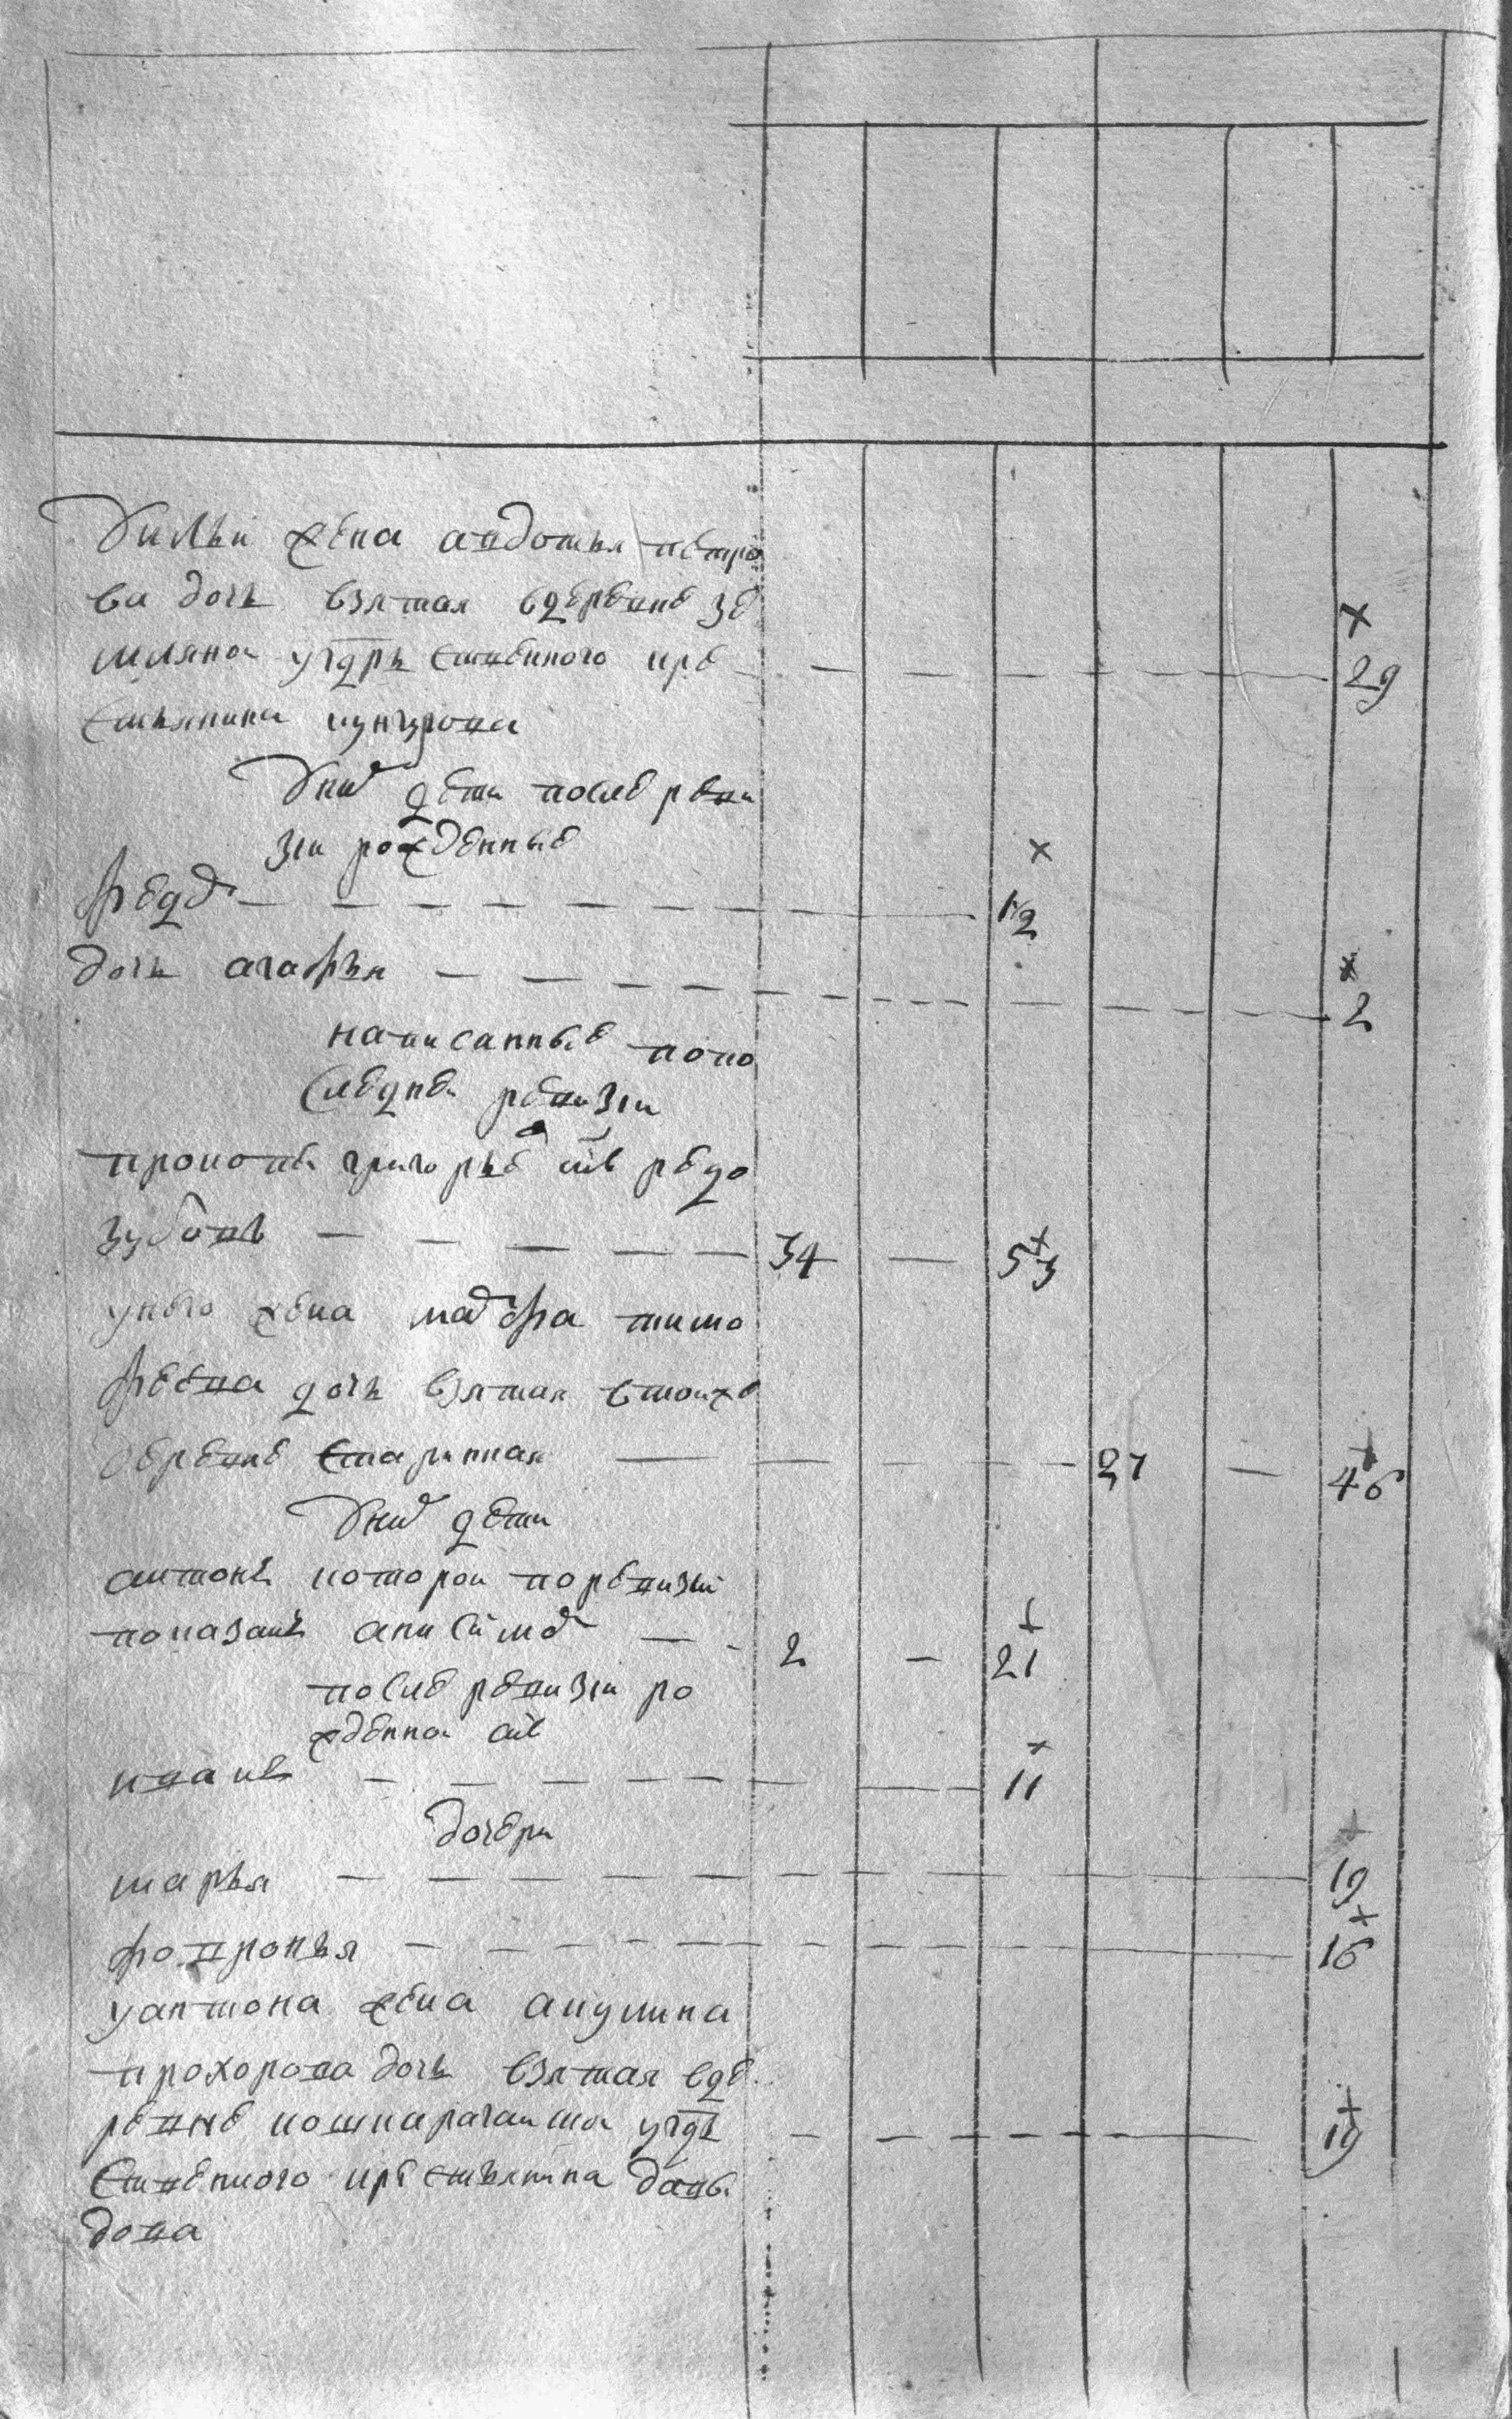 жена авдотья петро
ва дочь взятая вдеревне зе
мляно Ственного кре
стьянина кунгурова
уних дети после реви
зии рожденные
федор — 1/2
дочь агафья — 2
написанные попо
следней ревизии
прокопеи григорьев снъ редо
зубовъ — 34 — 53
унего жена мавра тимо
феева дочь взятая втоиже
деревне старинная — 27 — 46
уних дети
антонъ которои поревизии
показанъ анисимом — 2 — 21
после ревизии ро
жденнои снъ
иванъ — 11
дочери
марья — 19
фовронья — 16
уантона жена акулина
прохорова дочь взятая вде
ревне
ственного крестьянина давы
дова — 19